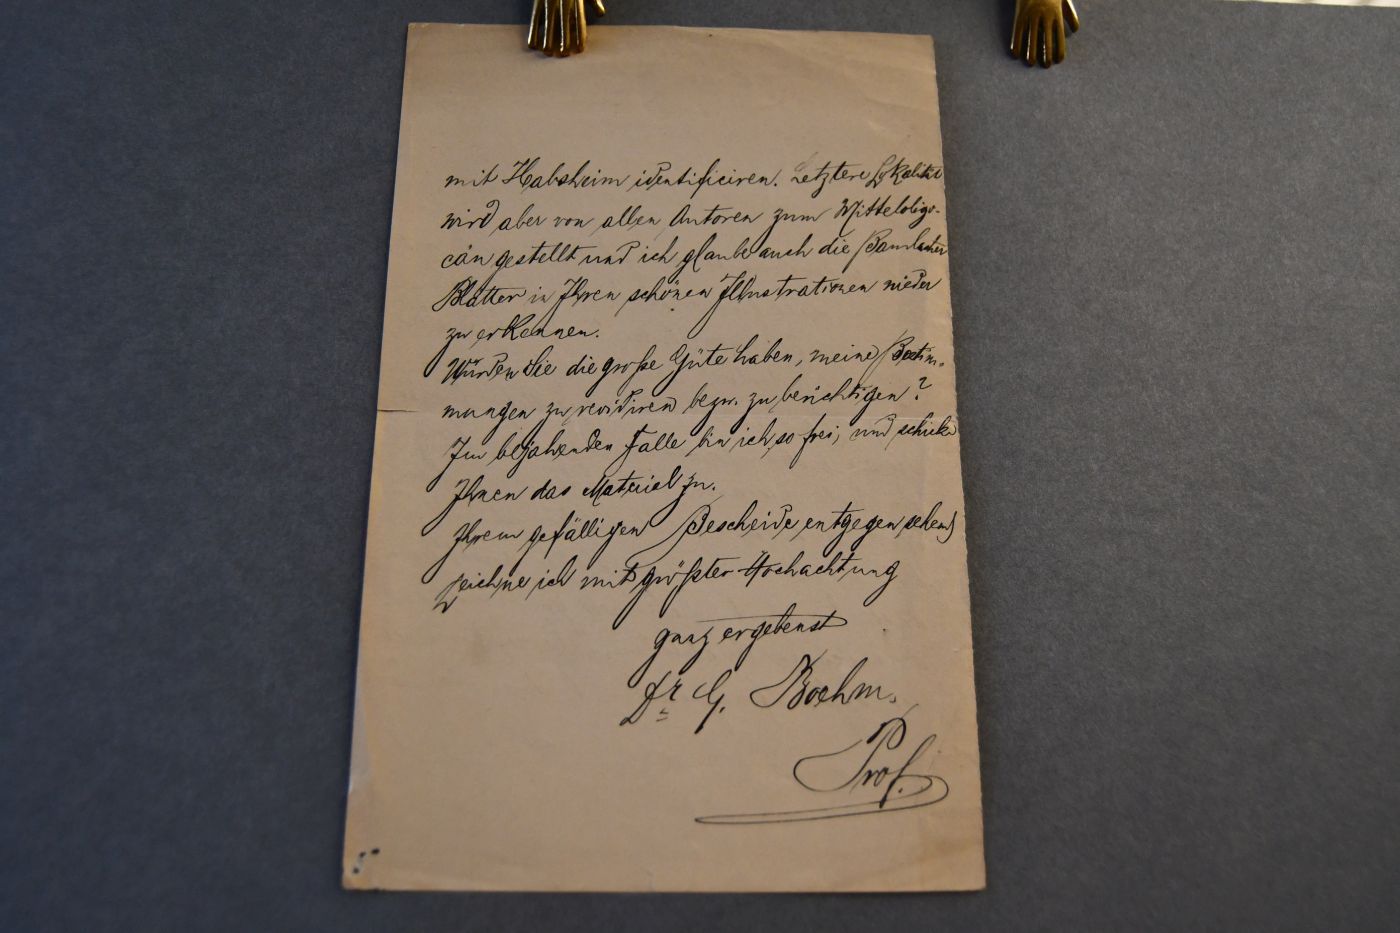 mit Habsheim identificiren. Letztere Lokalität
wird aber von allen Autoren zum Mitteloligo-
cän gestellt und ich glaube auch die Bamlacher
Blätter in Ihren schönen Illustrationen wieder
zu erkennen.
Würden Sie die große Güte haben, meine Bestim-
mungen zu revidiren bezw. zu berichtigen?
Im bejahenden Falle bin ich so frei, und schicke
Ihnen das Material zu.
Ihrem gefälligen Bescheide entgegen sehend
zeichne ich mit größter Hochachtung
ganz ergebenst
Dr G. Boehm.
Prof.